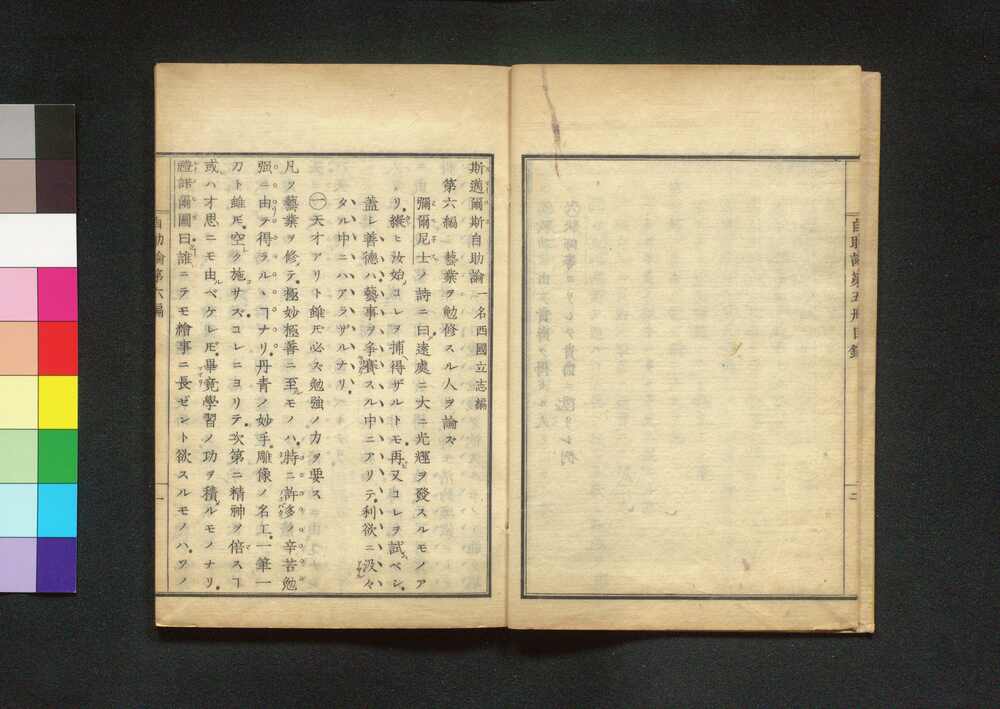 自助論第五冊目錄
二
斯邁爾斯自助論一名西國立志編
第六編 藝業ヲ勉修スル人ヲ論ス
彌爾尼士ノ詩ニ曰遠處ニ大ニ光輝ヲ發スルモノア
リ縱ヒ汝始コレヲ捕得ザルトモ再又コレヲ試ベシ
蓋シ善德ハ藝事ヲ爭賽スル中ニアリテ利欲ニ汲々
タル中ニハアラザルナリ
㊀天才アリト雖𪜈必ス勉強ノ力ヲ要ス
凡ソ藝業ヲ修テ極妙極善ニ至モノハ特ニ許多ノ辛苦勉
强ニ由テ得ラルヽヿナリ丹青ノ妙手雕像ノ名工一筆一
刀ト雖𪜈空ク施サズコレニヨリテ次第ニ精神ヲ倍スヿ
或ハ才思ニモ由ベケレ𪜈畢竟學習ノ功ヲ積ルモノナリ
禮諾爾圖曰誰ニテモ繪事ニ長ゼント欲スルモノハソノ
自助論第六編
一